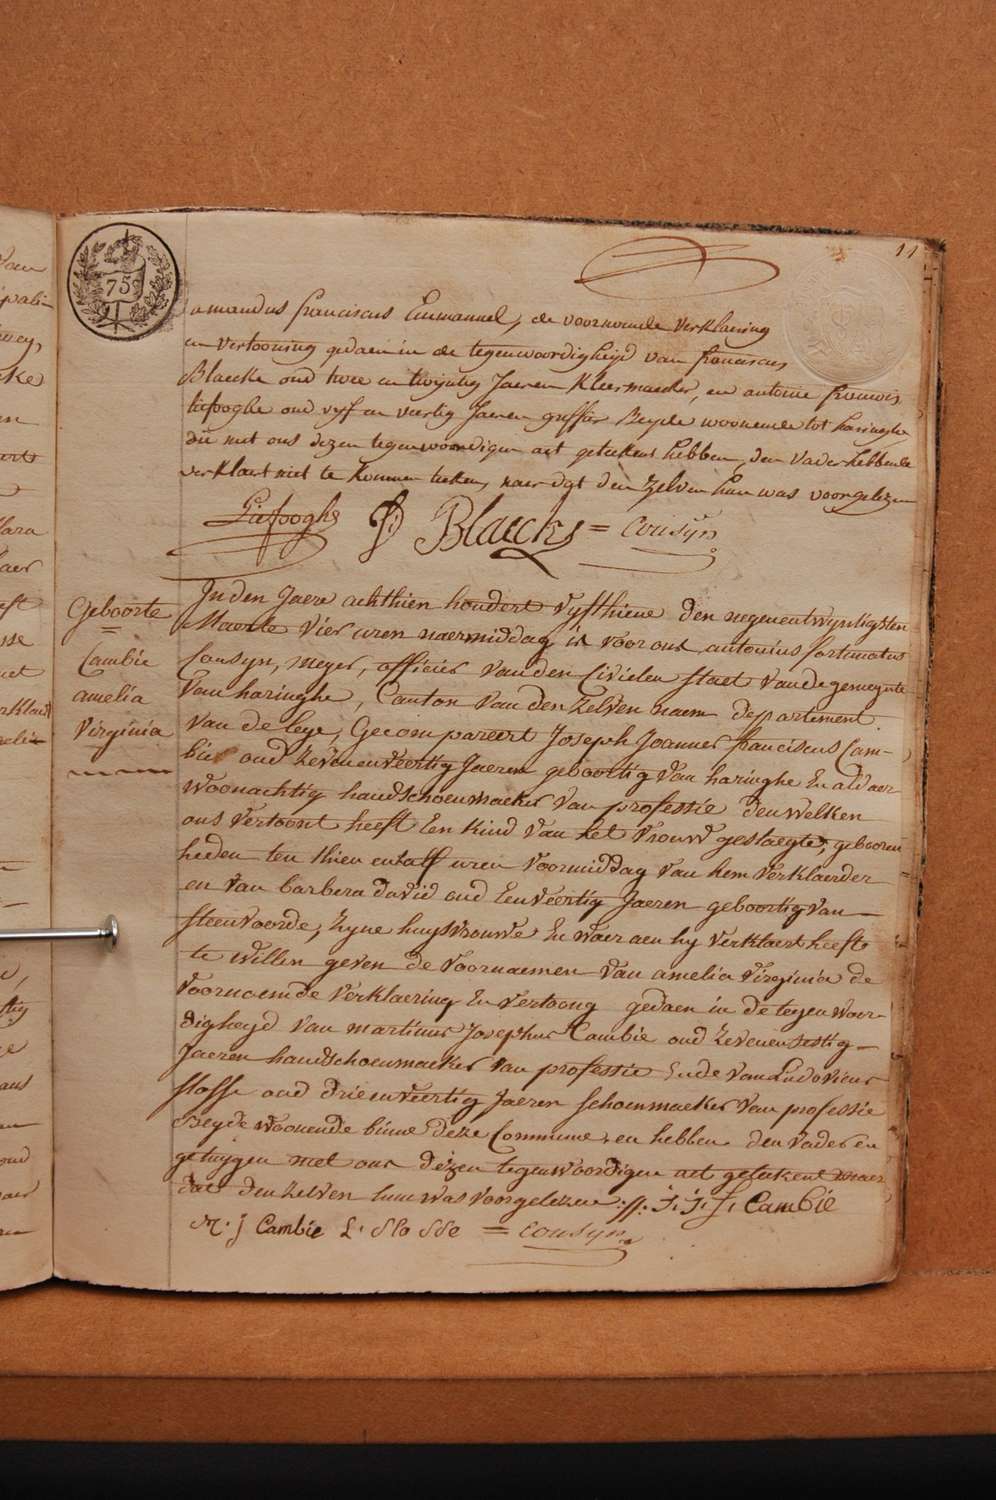 11
75
amandus franciscus Emmanuel, de voornoemde verklaering
en vertooning gedaen in de tegenwoordigheyd van franciscus
Blaecke oud twee en twijntig Jaeren Kleermaeker, en antoine francois
liefooghe oud vyf en viertig Jaeren greffier Beyde woonende tot haringhe
die met ons dezen tegenwoordigen act geteekent hebben, den vader hebbende
verklaert niet te konnen teeken, naer dat den zelven hun was voorgelezen
Liefooghe Blaecke = cousyn
Geboorte
Cambie
amelia
Virginia
In den Jaere achthien hondert vyfthiene den negenentwyntigsten
Maerte vier uren naermiddag is voor ons antonius fortunatus
Cousyn, meyer, officier van den Civielen staet van de gemeynte
van haringhe, Canton van den zelven naem departement
van de leye, Gecompareert Joseph Joannes franciscus Cam-
bie oud zevenenveertig Jaeren geboortig van haringhe En aldaer
woonachtig handschoenmaeker van professie den welken
ons vertoont heeft Een kind van het vrouw geslagte, gebooren
heden ten thien en half uren voormiddag van hem verklaerder
en van barbera david oud Eenveertig Jaeren geboortig van
steenvoorde, zyne huysvrouwe En waer aen hy verklaert heeft
te willen geven de voornaemen van amelia virginia de
voornoemde verklaering En vertoong gedaen in de tegenwoor-
digheyd van martinus Josephus Cambie oud zevenensestig
Jaeren handschoenmaeker van professie Ende van Ludovicus
slosse oud drienveertig Jaeren schoenmaeker van professie
Beyde woonende binne deze Commune, en hebben den vader en
getuygen met ons dezen tegenwoordigen act geteekent naer
dat den zelven hun was voorgelezen ://: J. J. f. Cambie
M. j Cambie L. Slosse = cousyn